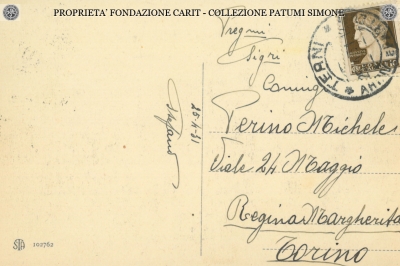 PROPRIETA' FONDAZIONE CARIT - COLLEZIONE PATUMI SIMONE
TERNI
Pregmi
Sigri
Coniug
Perino Michele
Viale 24 Maggio
Regina Margherita
Torino
Stefano
STA 102762